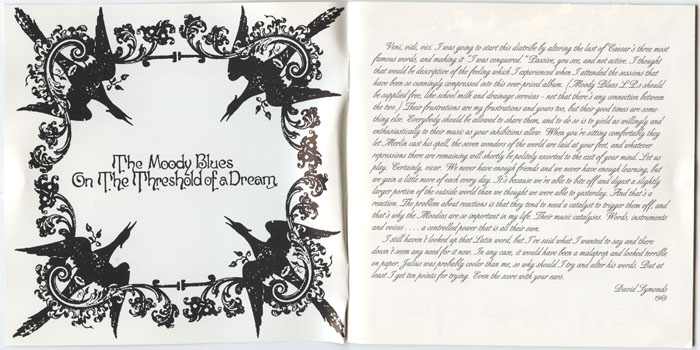 The Moody Blues
On The Threshold of a Dream
Veni, vidi, vici. I was going to start this diatribe by altering the last of Caesar's three most
famous words, and making it "I was conquered." Passive, you see, and not active. I thought
that would be descriptive of the feeling which I experienced when I attended the sessions that
have been so cunningly compressed into this over-priced album. (Moody Blues L.P.s should
be supplied free, like school milk and drainage services - not that there's any connection between
the two.) Their frustrations are my frustrations and yours too, but their good times are some-
thing else. Everybody should be allowed to share them, and to do so is to yield as willingly and
enthusiastically to their music as your inhibitions allow. When you're sitting comfortably they
let Merlin cast his spell, the seven wonders of the world are laid at your feet, and whatever
repressions there are remaining will shortly be politely escorted to the exit of your mind. Let us
play. Certainly, vicar. We never have enough friends and we never have enough learning, but
we gain a little more of each every day. It's because we're able to bite off and digest a slightly
larger portion of the outside world than we thought we were able to yesterday. And that's a
reaction. The problem about reactions is that they tend to need a catalyst to trigger them off, and
that's why the Moodies are so important in my life. Their music catalyses. Words, instruments
and voices . . . . a controlled power that is all their own.
I still haven't looked up that Latin word, but I've said what I wanted to say and there
doesn't seem any need for it now. In any case, it would have been a malaprop and looked terrible
on paper. Julius was probably cooler than me, so why should I try and alter his words. But at
least I get ten points for trying. Even the score with your ears.
David Symonds
1969